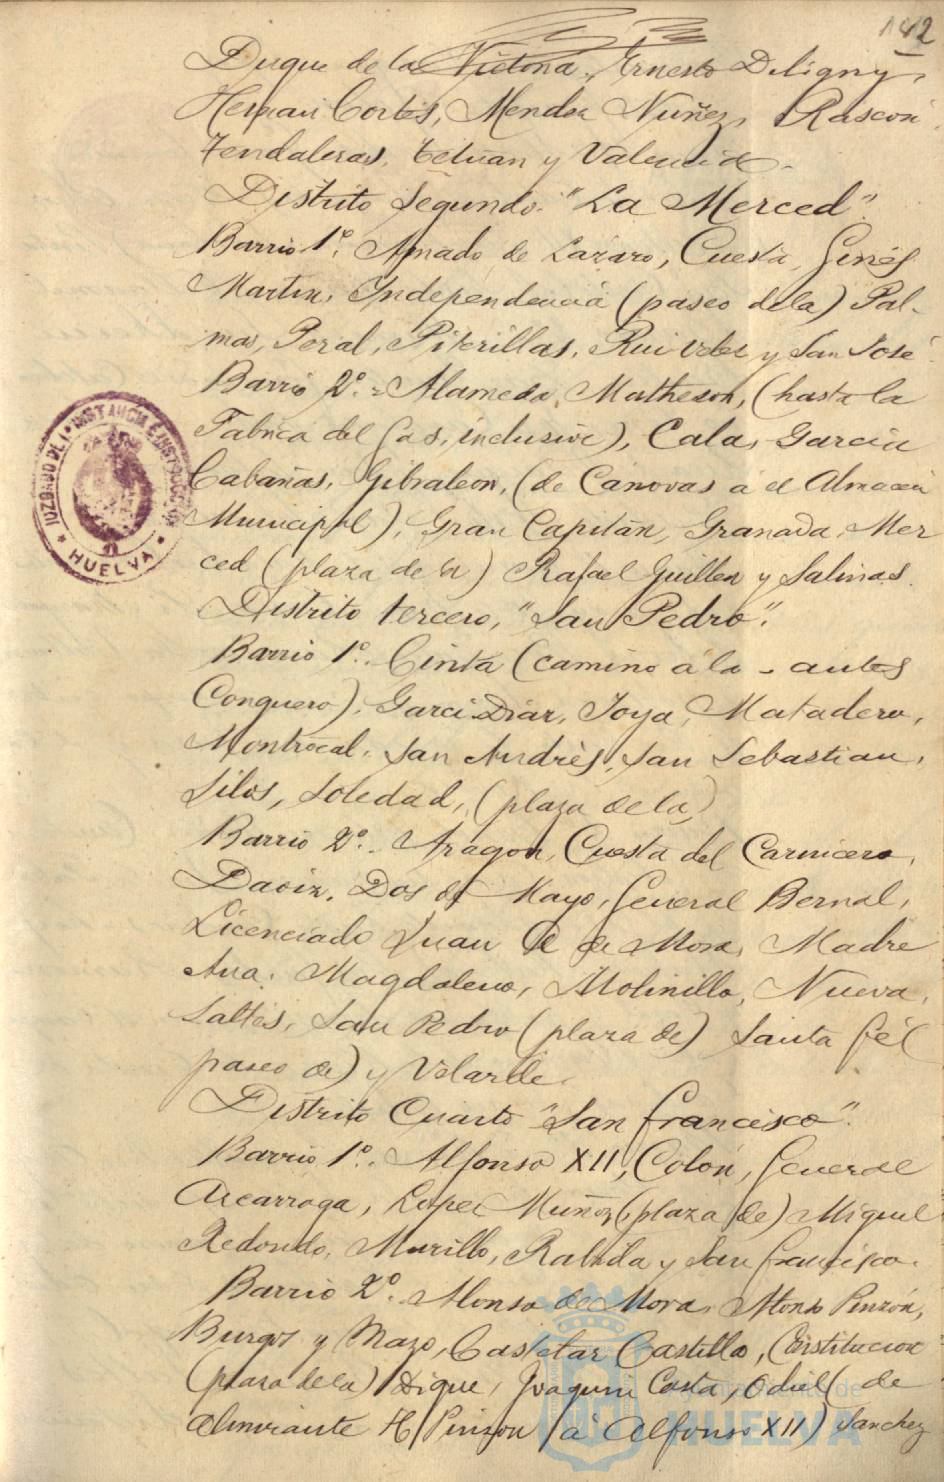 142
Duque de la Victoria, Ernesto Deligny,
Hernan Cortés, Mendez Nuñez, Rascón
Tendaleras, Tetuan y Valencia.
Distrito Segundo. "La Merced".
Barrio 1º. Amado de Lazaro, Cuesta, Ginés
Martin, Independencia (paseo dela) Pal-
mas, Peral, Piterillas, Rui Velez y San José
Barrio 2º.= Alameda Matheson, (hasta la
Fabrica del Gas, inclusive), Cala, Garcia
Cabañas, Gibraleon, (de Cánovas á el Almacén
Municipal), Gran Capitán, Granada, Mer
ced (plaza de la) Rafael Guillen y Salinas.
Distrito tercero, "San Pedro".
Barrio 1º. Cinta (camino á la - antes
Conquero), Garci-Diaz, Joya, Matadero,
Montrocal, San Andrès, San Sebastian,
Silos, Soledad, (plaza de la)
Barrio 2º. Aragon, Cuesta del Carnicero,
Daoiz, Dos de Mayo, General Bernal,
Licenciado Juan A de Mora, Madre
Ana, Magdalena, Molinillo, Nueva,
Saltés, San Pedro (plaza de) Santa Fé (
paseo de) y Velarde.
Distrito Cuarto "San Francisco".
Barrio 1º. Alfonso XII, Colón, General
Azcarraga, Lopez Muñoz, (plaza de) Miguel
Redondo, Murillo, Rabida y San Francisco.
Barrio 2º. Alonso de Mora, Alonso Pinzón,
Burgos y Mazo, Castelar Castillo, Constitucion
(plaza de la) Dique, Joaquin Costa, Odiel (de
Almirante H/Pinzon á Alfonso XII) Sanchez
JUZGADO DE 1ª INSTANCIA É INSTRUCCION
* HUELVA *
Ayuntamiento de
HUELVA